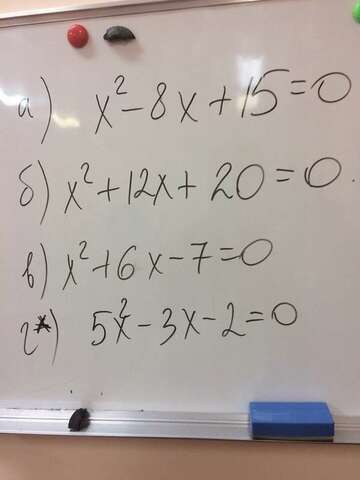 а) x² - 8x + 15 = 0
б) x² + 12x + 20 = 0.
в) x² + 6x - 7 = 0
г*) 5x² - 3x - 2 = 0